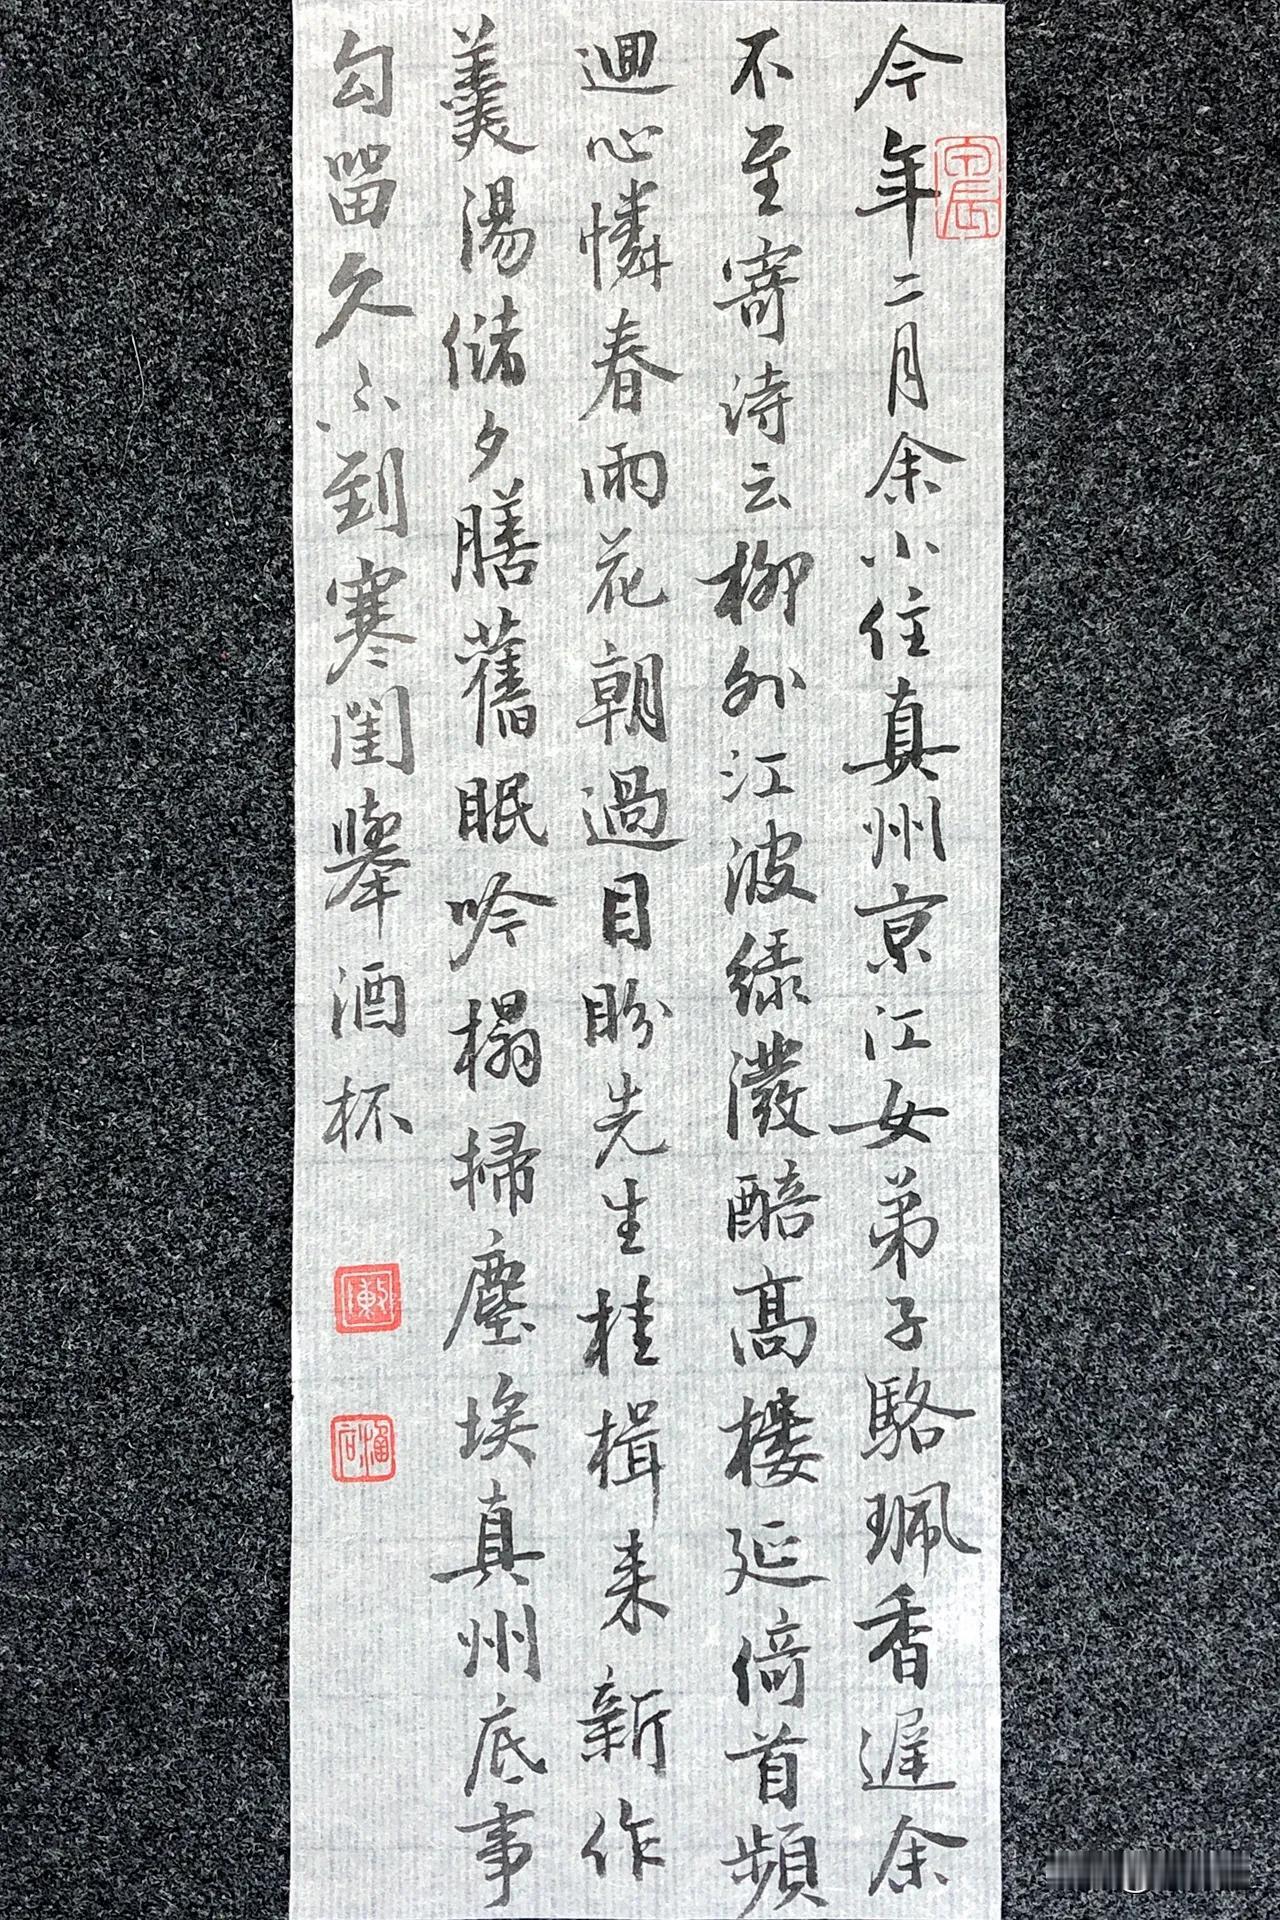 今年二月余小住真州京江女弟子駱珮香遲余
不至寄诗云柳外江波绿潑醅高樓延倚首頻
迴心憐春雨花朝過目盼先生桂楫来新作
羹湯儲夕膳舊眠吟榻掃塵埃真州底事
勾留久不到寒閨舉酒杯